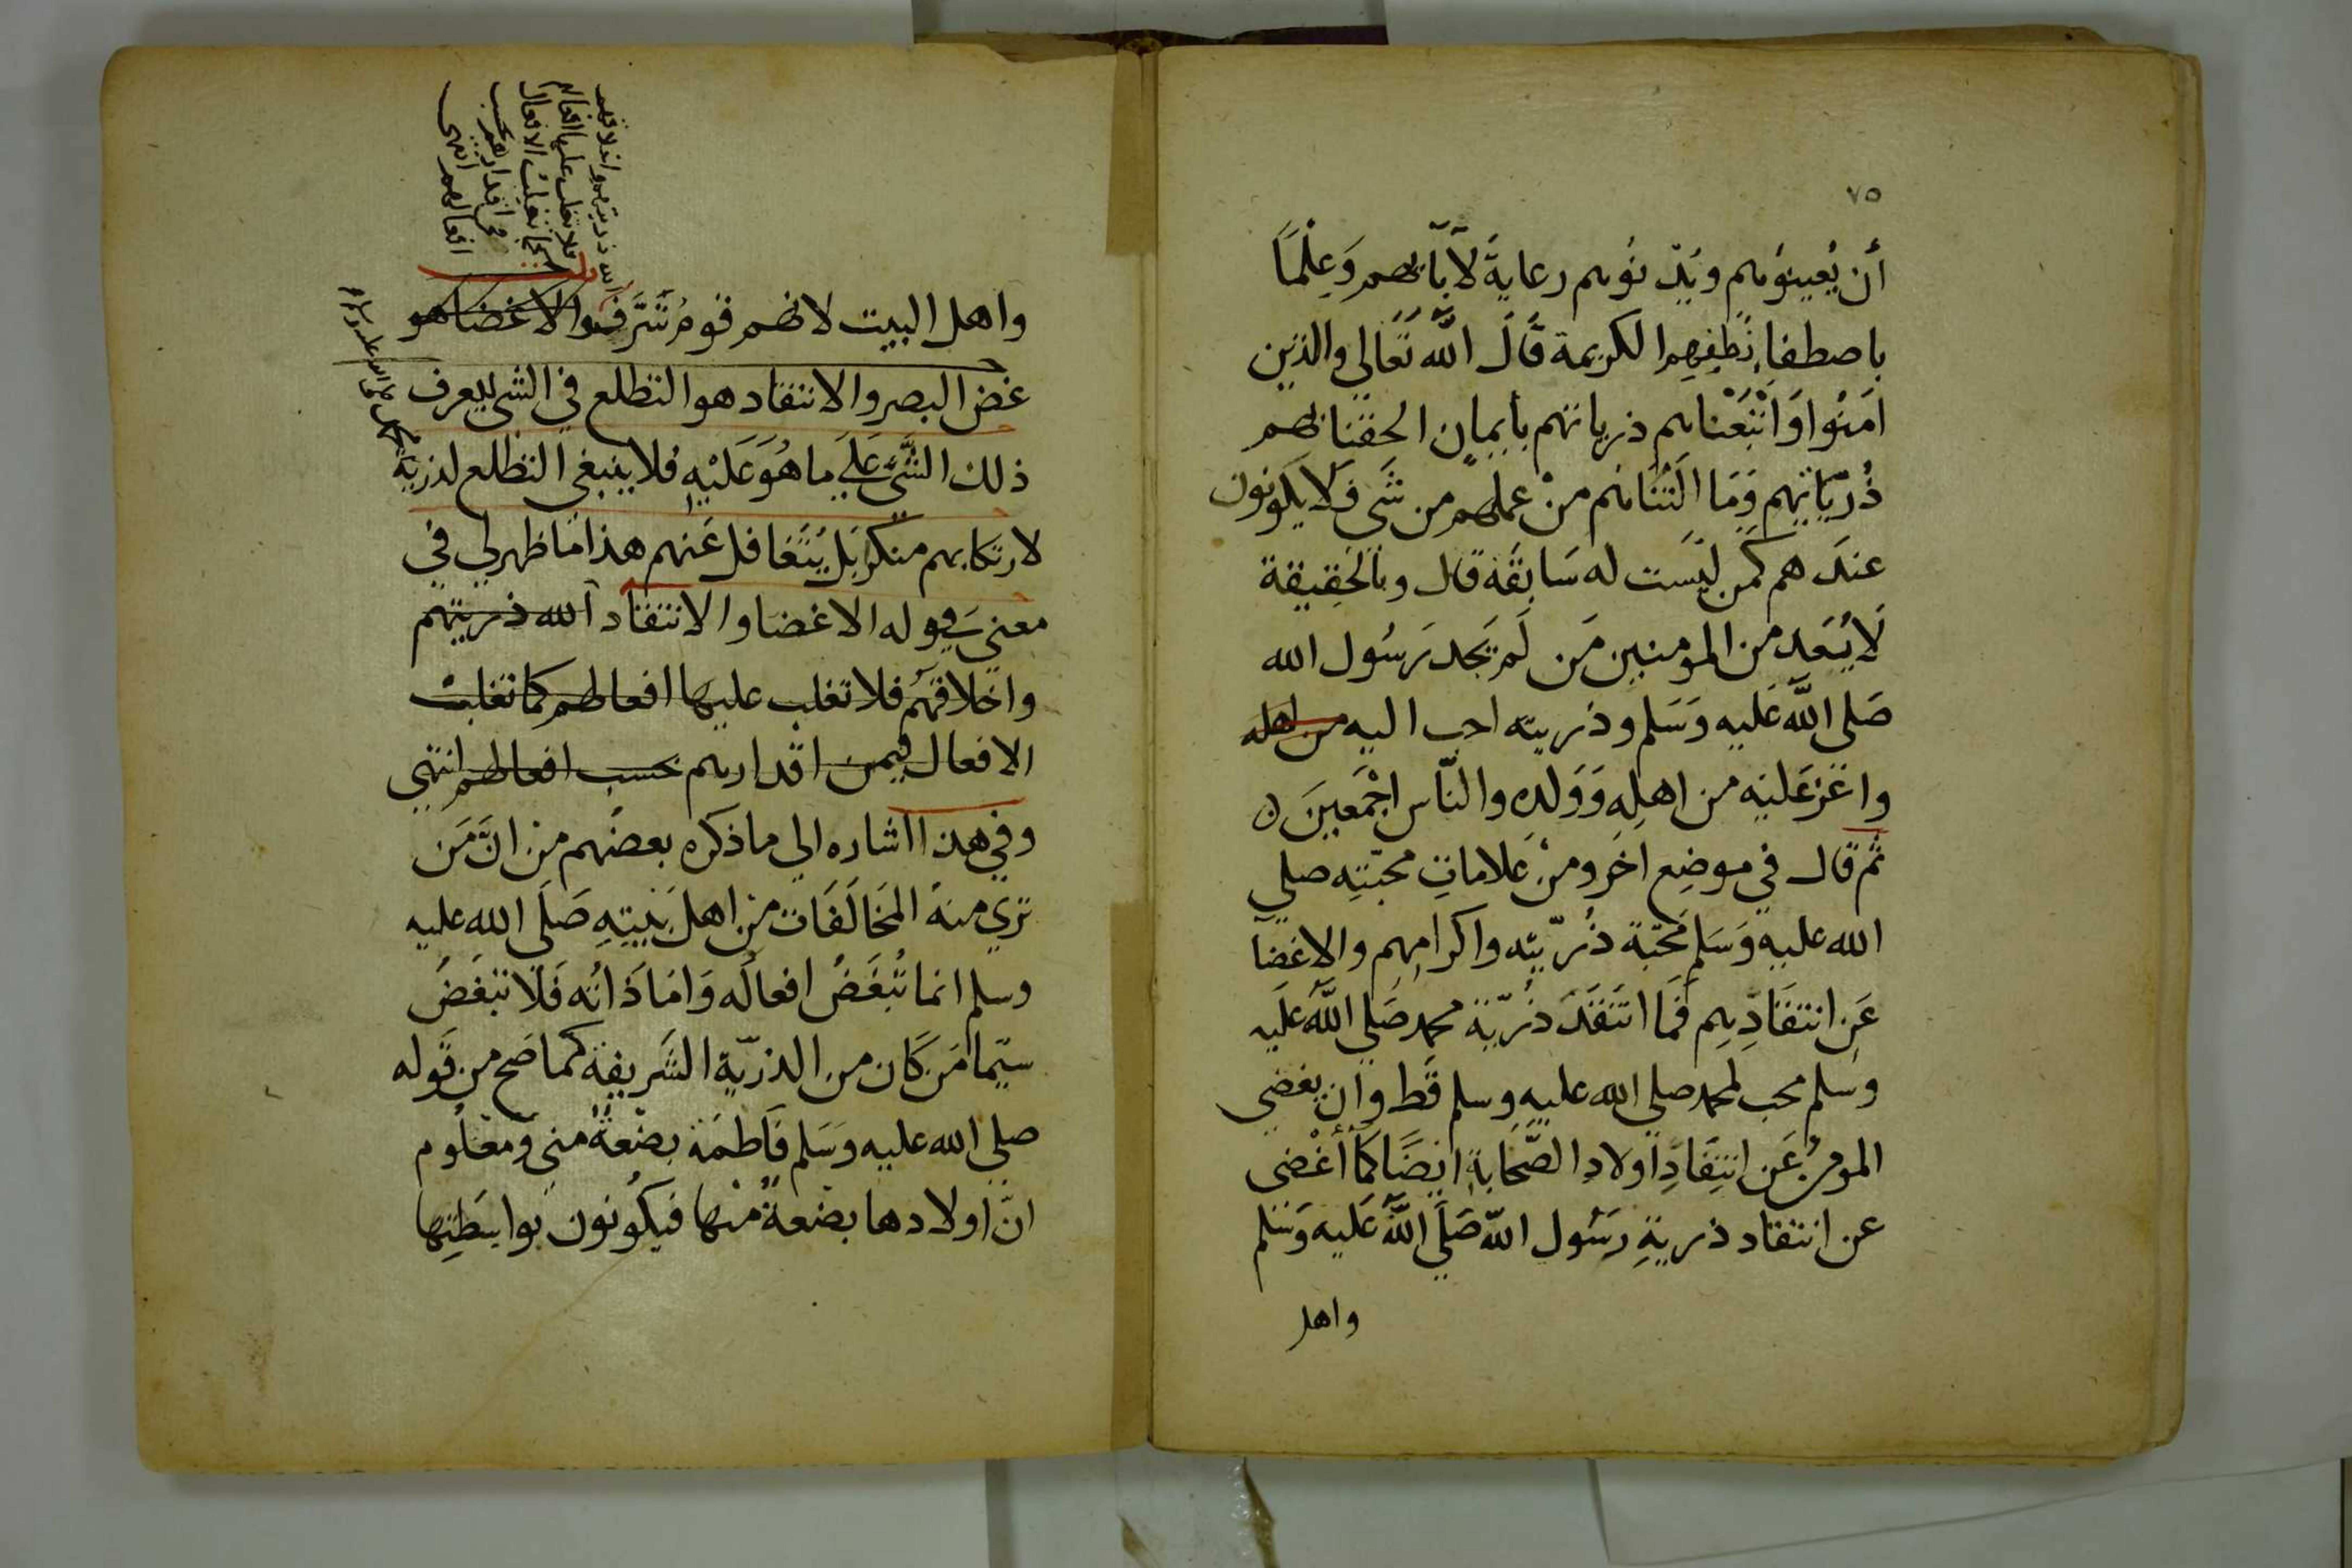 ٧٥
أن يُعينوُهم ويُدْنوُهم رعايةً لآبَآئهم وَعِلْمًا
باصطفاءِ نُطَفِهِم الكريمة قَالَ اللّه تَعَالي والذين
امَنُوا وَاَتْبَعْناهم ذرياتهم بأيمانٍ الحقنا بهم
ذُريّاتهم وَمَا اَلَتْنَاهُم منْ عملهم من شَي فَلَا يَكونون
عندَهم كَمن ليَست له سَابقَة قال وبالحَقِيقة
لَا يُعَد من المومنين مَن لَم يَجد رَسُول الله
صَلي اللّه عَليه وَسَلم وذريته احب اليه من اهله
واعَزعَليْه من اهلِهِ وَوَلدِه والنّاس اجْمَعينَ ن
ثم قال في موضِع اخَر ومنْ عَلاماتِ محبّتِه صلي
الله عليه وَسَلم مَحبّة ذُرّيّتِه واكرامِهِم والاغضآ
عَنِ انتقَادِهِم فَمَا انتَقَدَ ذُرّيّة محمد صَلي اللّه عَليه
وسلم محب لمحمد صلي الله عليه وسلم قَط وان يغضي
المومنُ عَن انتِقَادِ اولادِ الصّحَابةِ ايضًا كَمَا أغْضي
عن انتقاد ذريةِ رَسُول اللّه صَلّي اللّه عَليه وَسَلم
واهل
الله ذريتهم واخلاقهم
فلا تغلب عليها افعالهم
كما تغلبت الافعال
في اقدارهم بحسب
افعالهم انتهى
واهل البيت لانهم قومُ تَشَرَّفوا والاغضا هو
غض البصر والانتقاد هو التطلع في الشي ليعرف
ذلك الشَّي عَلي ما هُوَ عَلَيْهِ فلا ينبغي التطلع لذرية
محمد صلى الله عليه وسلم
لارتكابهم منكرًا بَل يُتَغافل عَنهم هذا مَا ظهر لي في
معني قوله الاغضا والانتقاد الله ذريتهم
واخلاقهُم فلا تغلب عليها افعالهم كما تغلبت
الافعال فيمن اقدارهم بحسب افعالهم انتهي
وفي هذا اشاره الي ما ذكره بعضُهم منْ انَّ مَن
تري منهُ المخَالَفَات منْ اهل بَيتِهِ صَلَى الله عليه
وسلم انما تُبْغَضُ افعالُه وَامَا ذَاتُه فَلَا تبغَضُ
سيّما مَن كَان من الذرّيّة الشَريفة كما صَح من قَوله
صلي الله عليه وَسَلم فَاطمَة بضْعةٌ منيِ ومعْلُوم
انّ اولادها بضعةٌ منْها فيَكُونون بواسَطِتِها